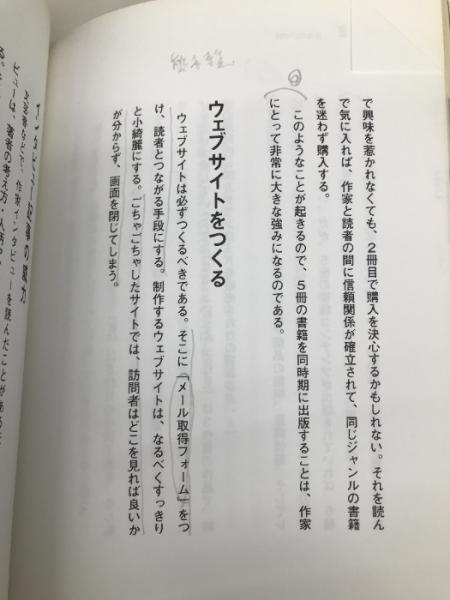 で興味を惹かれなくても、2冊目で購入を決心するかもしれない。それを読ん
で気に入れば、作家と読者の間に信頼関係が確立されて、同じジャンルの書籍
を迷わず購入する。
このようなことが起きるので、5冊の書籍を同時期に出版することは、作家
にとって非常に大きな強みになるのである。
ウェブサイトをつくる
ウェブサイトは必ずつくるべきである。そこに「メール取得フォーム」をつ
け、読者とつながる手段にする。制作するウェブサイトは、なるべくすっきり
と小綺麗にする。ごちゃごちゃしたサイトでは、訪問者はどこを見れば良いか
が分からず、画面を閉じてしまう。
作家インタビューを読んだことがあるだ
ビューは、著者の考え方・人柄や